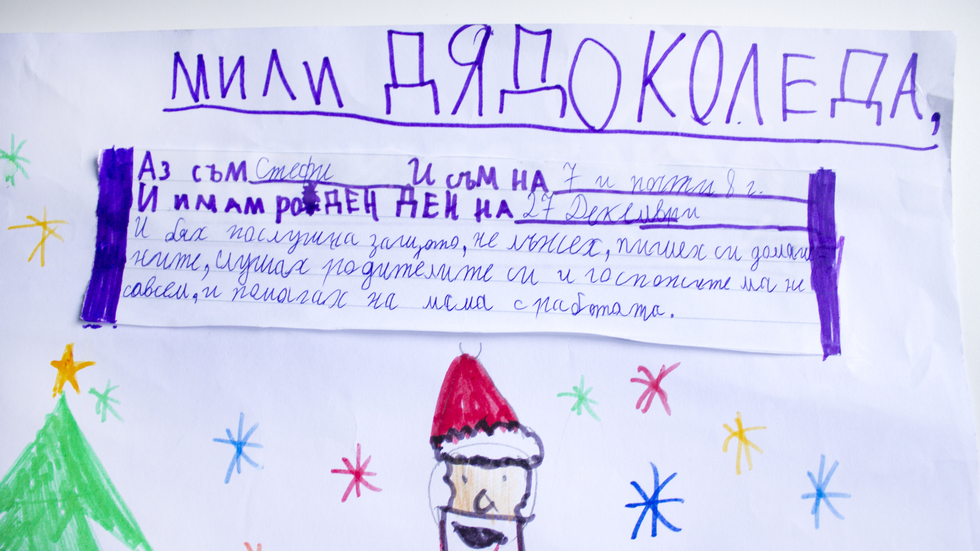 МИЛИ ДЯДО КОЛЕДА,
Аз съм Стефи И съм НА 7 и почти 8 г.
И имам рожДЕН ДЕН НА 27 Декември
И бях послушна защото, не лъжех, пишех си домаш-
ните, слушах родителите си и госпожите ма не
совсем, и помагах на мама с работата.